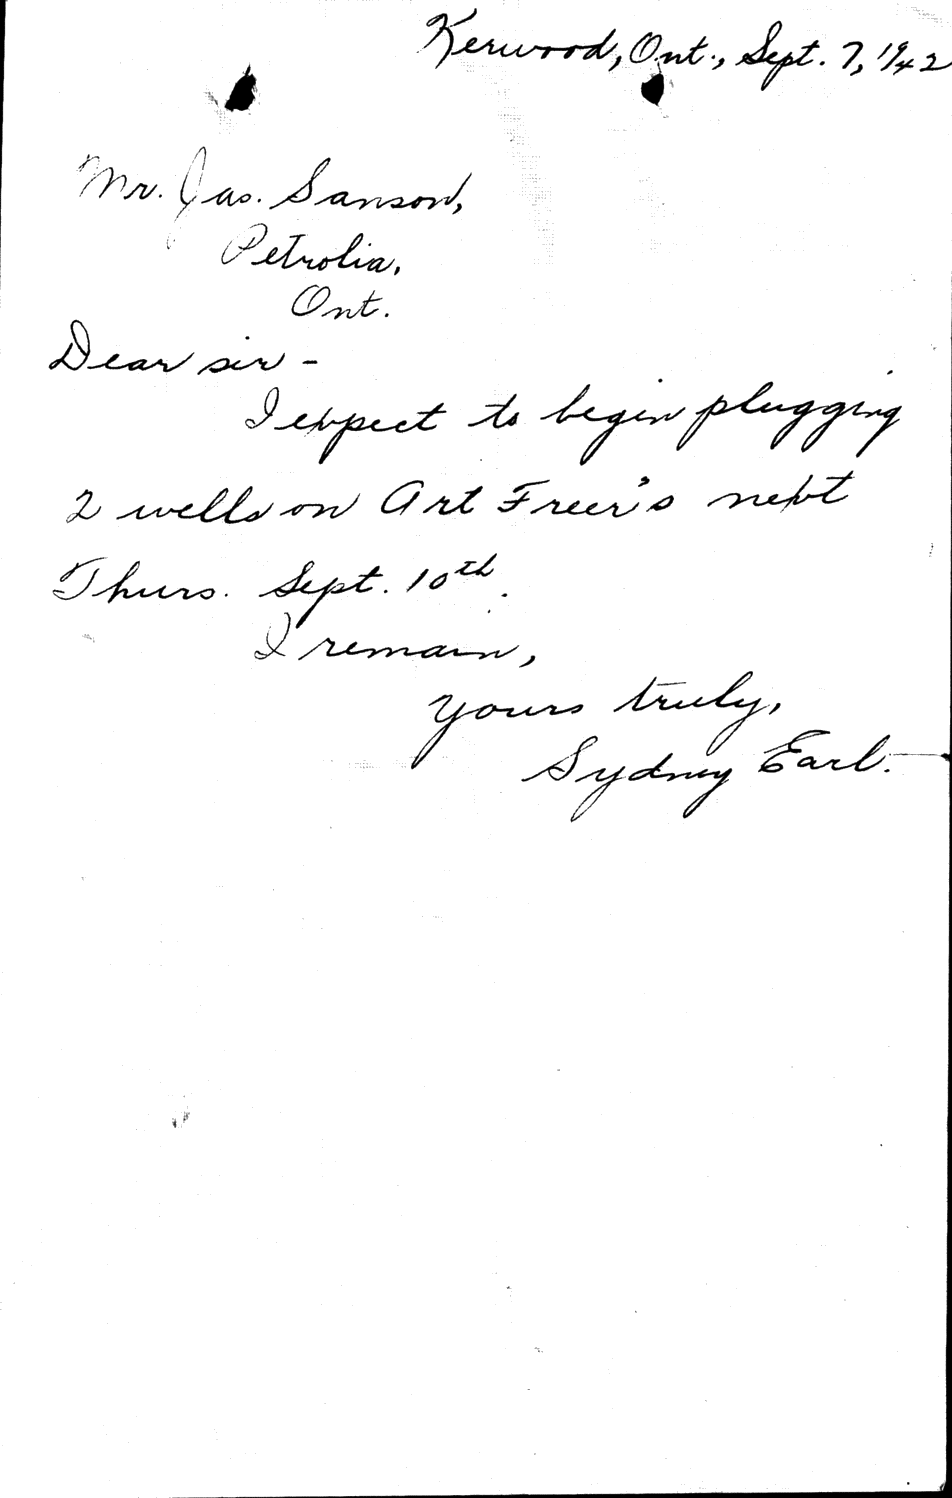 Kerwood, Ont., Sept. 7, 1942
Mr. Jas. Sanson,
Petrolia,
Ont.
Dear sir -
I expect to begin plugging
2 wells on Art Freer's next
Thurs. Sept. 10th.
I remain,
yours truly,
Sydney Earl.